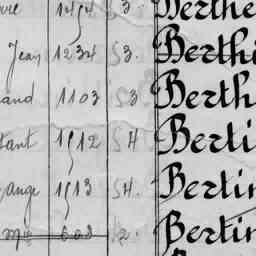 1454 3. Berthe
Jean 1234 53. Berth
and 1103 53 Berth
tant 1512 54 Berti
ange 1513 54. Bertin
603 2. Bertin